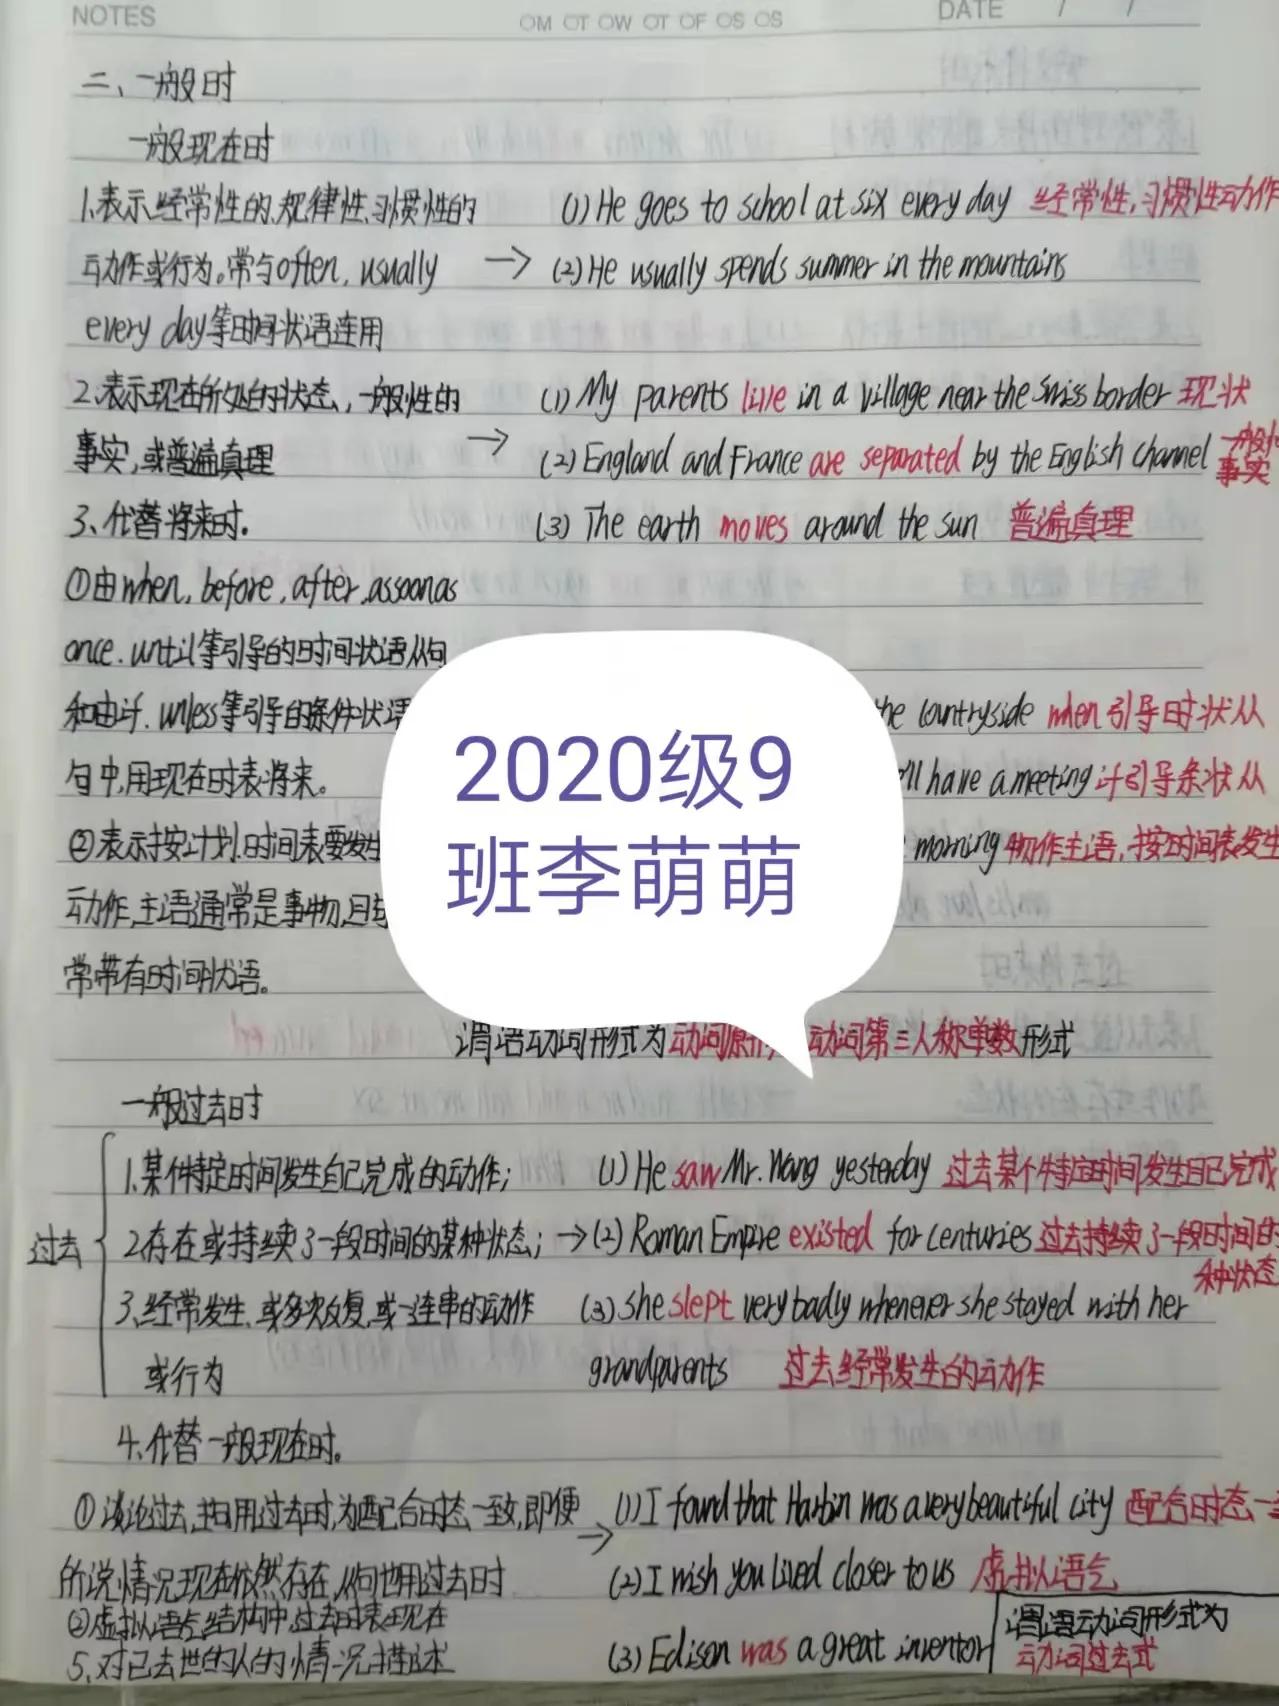 NOTES
OM OT OW OT OF OS OS
DATE / /
二、一般时
一般现在时
1.表示经常性的,规律性,习惯性的 (1) He goes to school at six every day 经常性,习惯性动作
动作或行为。常与often, usually → (2) He usually spends summer in the mountains
every day等时间状语连用
2.表示现在所处的状态,一般性的 (1) My parents live in a village near the Swiss border 现状
事实,或普遍真理 → (2) England and France are separated by the English channel 一般性事实
3、代替将来时. (3) The earth moves around the sun 普遍真理
①由when, before, after, as soon as
once. until等引导的时间状语从句
和由if. unless等引导的条件状语 the countryside when引导时状从
句中,用现在时表将来。 'll have a meeting if引导条状从
②表示按计划.时间表要发生 morning 物作主语,按时间表发生
动作,主语通常是事物,且
常带有时间状语。
2020级9
班李萌萌
谓语动词形式为动词原形 动词第三人称单数形式
一般过去时
过去
1.某件特定时间发生自己完成的动作; (1) He saw Mr. Wang yesterday 过去某个特定时间发生自己完成
2存在或持续了一段时间的某种状态; → (2) Roman Empire existed for centuries 过去持续了一段时间的
种状态
3.经常发生,或多次反复,或一连串的动作 (3) she slept very badly whenever she stayed with her
或行为 grandparents 过去经常发生的动作
4.代替一般现在时。
①谈论过去,且用过去时,为配合时态一致,即便 → (1) I found that Harbin was a very beautiful city 配合时态一
所说情况现在依然存在,从句也用过去时 (2) I wish you lived closer to us 虚拟语气
②虚拟语气结构中,过去时表现在
谓语动词形式为
5、对已去世的人的情况描述 (3) Edison was a great inventor 动词过去式